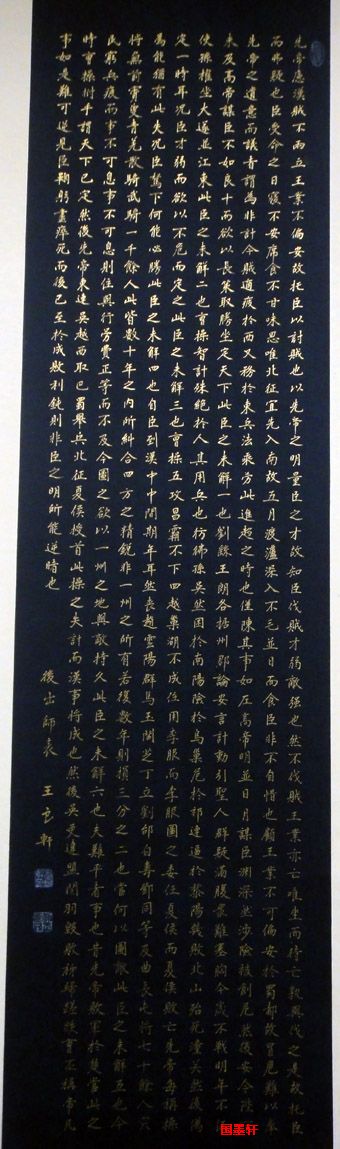 先帝慮漢賊不兩立王業不偏安故托臣以討賊也以先帝之明量臣之才故知臣伐賊才弱敵強也然不伐賊王業亦亡唯坐而待亡孰與伐之是故托臣
而弗疑也臣受命之日寢不安席食不甘味思唯北征宜先入南故五月渡瀘深入不毛並日而食臣非不自惜也顧王業不可偏安於蜀都故冒危難以奉
先帝之遺意而議者謂為非計今賊適疲於西又務於東兵法乘勞此進趨之時也謹陳其事如左高帝明並日月謀臣淵深然涉險被創危然後安今陛下
未及高帝謀臣不如良平而欲以長策取勝坐定天下此臣之未解一也劉繇王朗各據州郡論安言計動引聖人群疑滿腹眾難塞胸今歲不戰明年不
使孫權坐大遂並江東此臣之未解二也曹操智計殊絕於人其用兵也彷彿孫吳然困於南陽險於烏巢危於祁連逼於黎陽幾敗北山殆死潼關然後偽
定一時耳況臣才弱而欲以不危而定之此臣之未解三也曹操五攻昌霸不下四越巢湖不成任用李服而李服圖之委任夏侯而夏侯敗亡先帝每稱操
為能猶有此失況臣駑下何能必勝此臣之未解四也自臣到漢中中間期年耳然喪趙雲陽群馬玉閻芝丁立劉郃白壽鄧同等及曲長屯將七十餘人突
將無前賨叟青羌散騎武騎一千餘人此皆數十年之內所糾合四方之精銳非一州之所有若復數年則損三分之二也當何以圖敵此臣之未解五也今
民窮兵疲而事不可息事不可息則住與行勞費正等而不及今圖之欲以一州之地與敵持久此臣之未解六也夫難平者事也昔先帝敗軍於楚當此之
時曹操拊手謂天下已定然後先帝東連吳越西取巴蜀舉兵北征夏侯授首此操之失計而漢事將成也然後吳更違盟關羽毀敗秭歸蹉跌曹丕稱帝凡
事如是難可逆見臣鞠躬盡瘁死而後已至於成敗利鈍則非臣之明所能逆睹也
後出師表 王玄軒
国墨轩